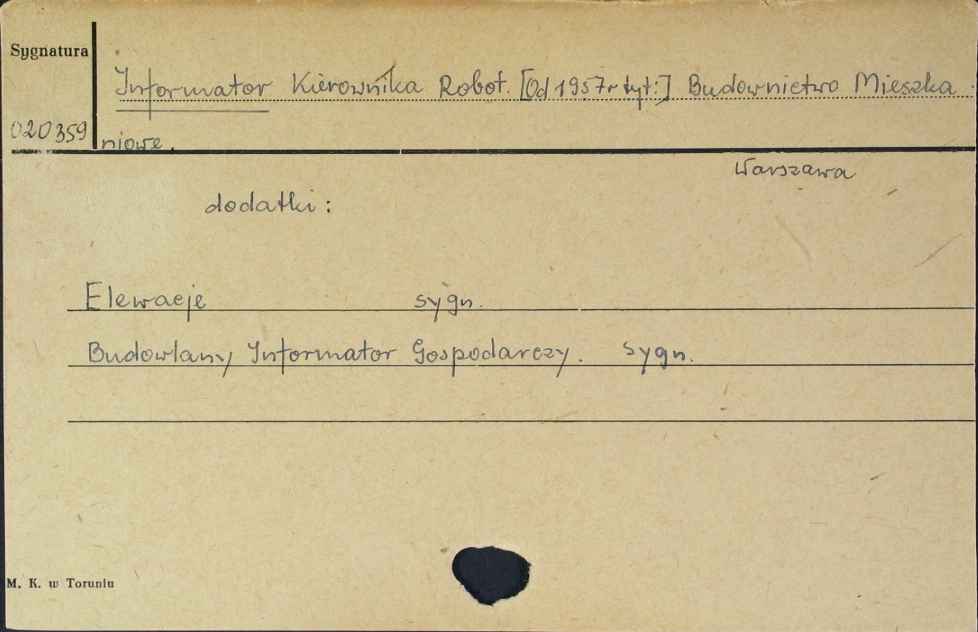 Sygnatura
Informator Kierownika Robot. [Od 1957r tyt:] Budownictwo Mieszka
020359 niowe.
Warszawa
dodatki:
Elewacje sygn.
Budowlany Informator Gospodarczy. sygn.
M. K. w Toruniu